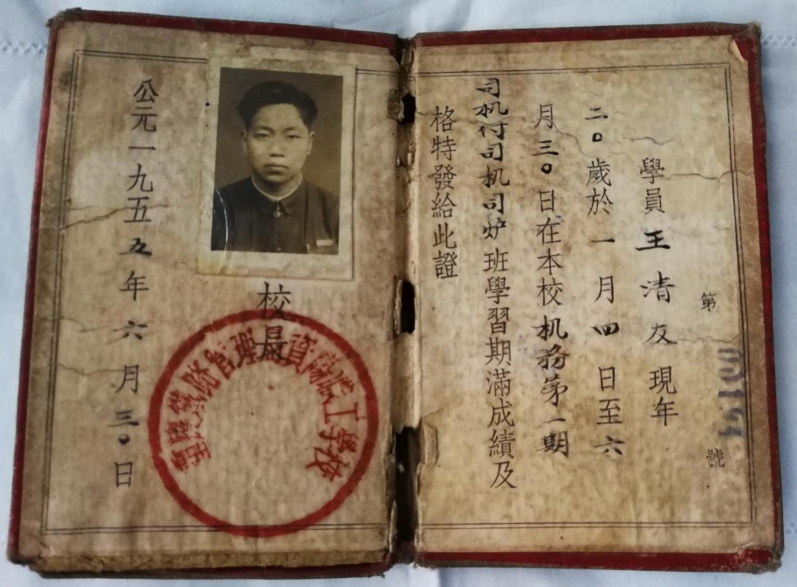 第 號
學員王清友現年
二〇歲於一月四日至六
月三〇日在本校机務第一期
司机付司机司炉班學習期滿成績及
格特發給此證
校長
重慶鐵路管理局資陽職工學校
公元一九五五年六月三〇日